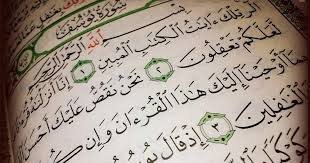 سُورَةُ يُوسُفَ
ٱللَّهِ ٱلرَّحْمَٰنِ
الٓر تِلْكَ ءَايَٰتُ ٱلْكِتَٰبِ ٱلْمُبِينِ ١ إِنَّآ أَنزَلْنَٰهُ
لَّعَلَّكُمْ تَعْقِلُونَ ٢ نَحْنُ نَقُصُّ عَلَيْكَ أَحْسَنَ
بِمَآ أَوْحَيْنَآ إِلَيْكَ هَٰذَا ٱلْقُرْءَانَ وَإِن
ٱلْغَٰفِلِينَ ٣ إِذْ قَالَ
كَوْكَبًا